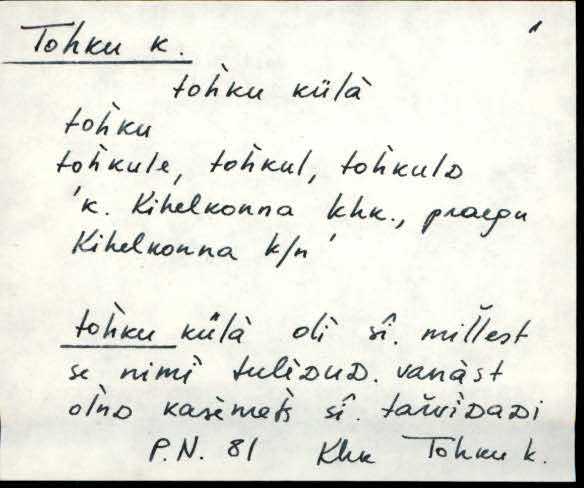 Tohku k.
toh̀ku külà
toh̀ku
toh̀kule, toh̀kul, toh̀kulᴅ
'k. Kihelkonna khk., praegu
Kihelkonna k/n'
toh̀ku külà olì sî. millest
se nimì tulìᴅuᴅ. vanàst
olnᴅ kasèmets sî. tarviᴅaᴅi
P.N. 81 Khk Tohku k.